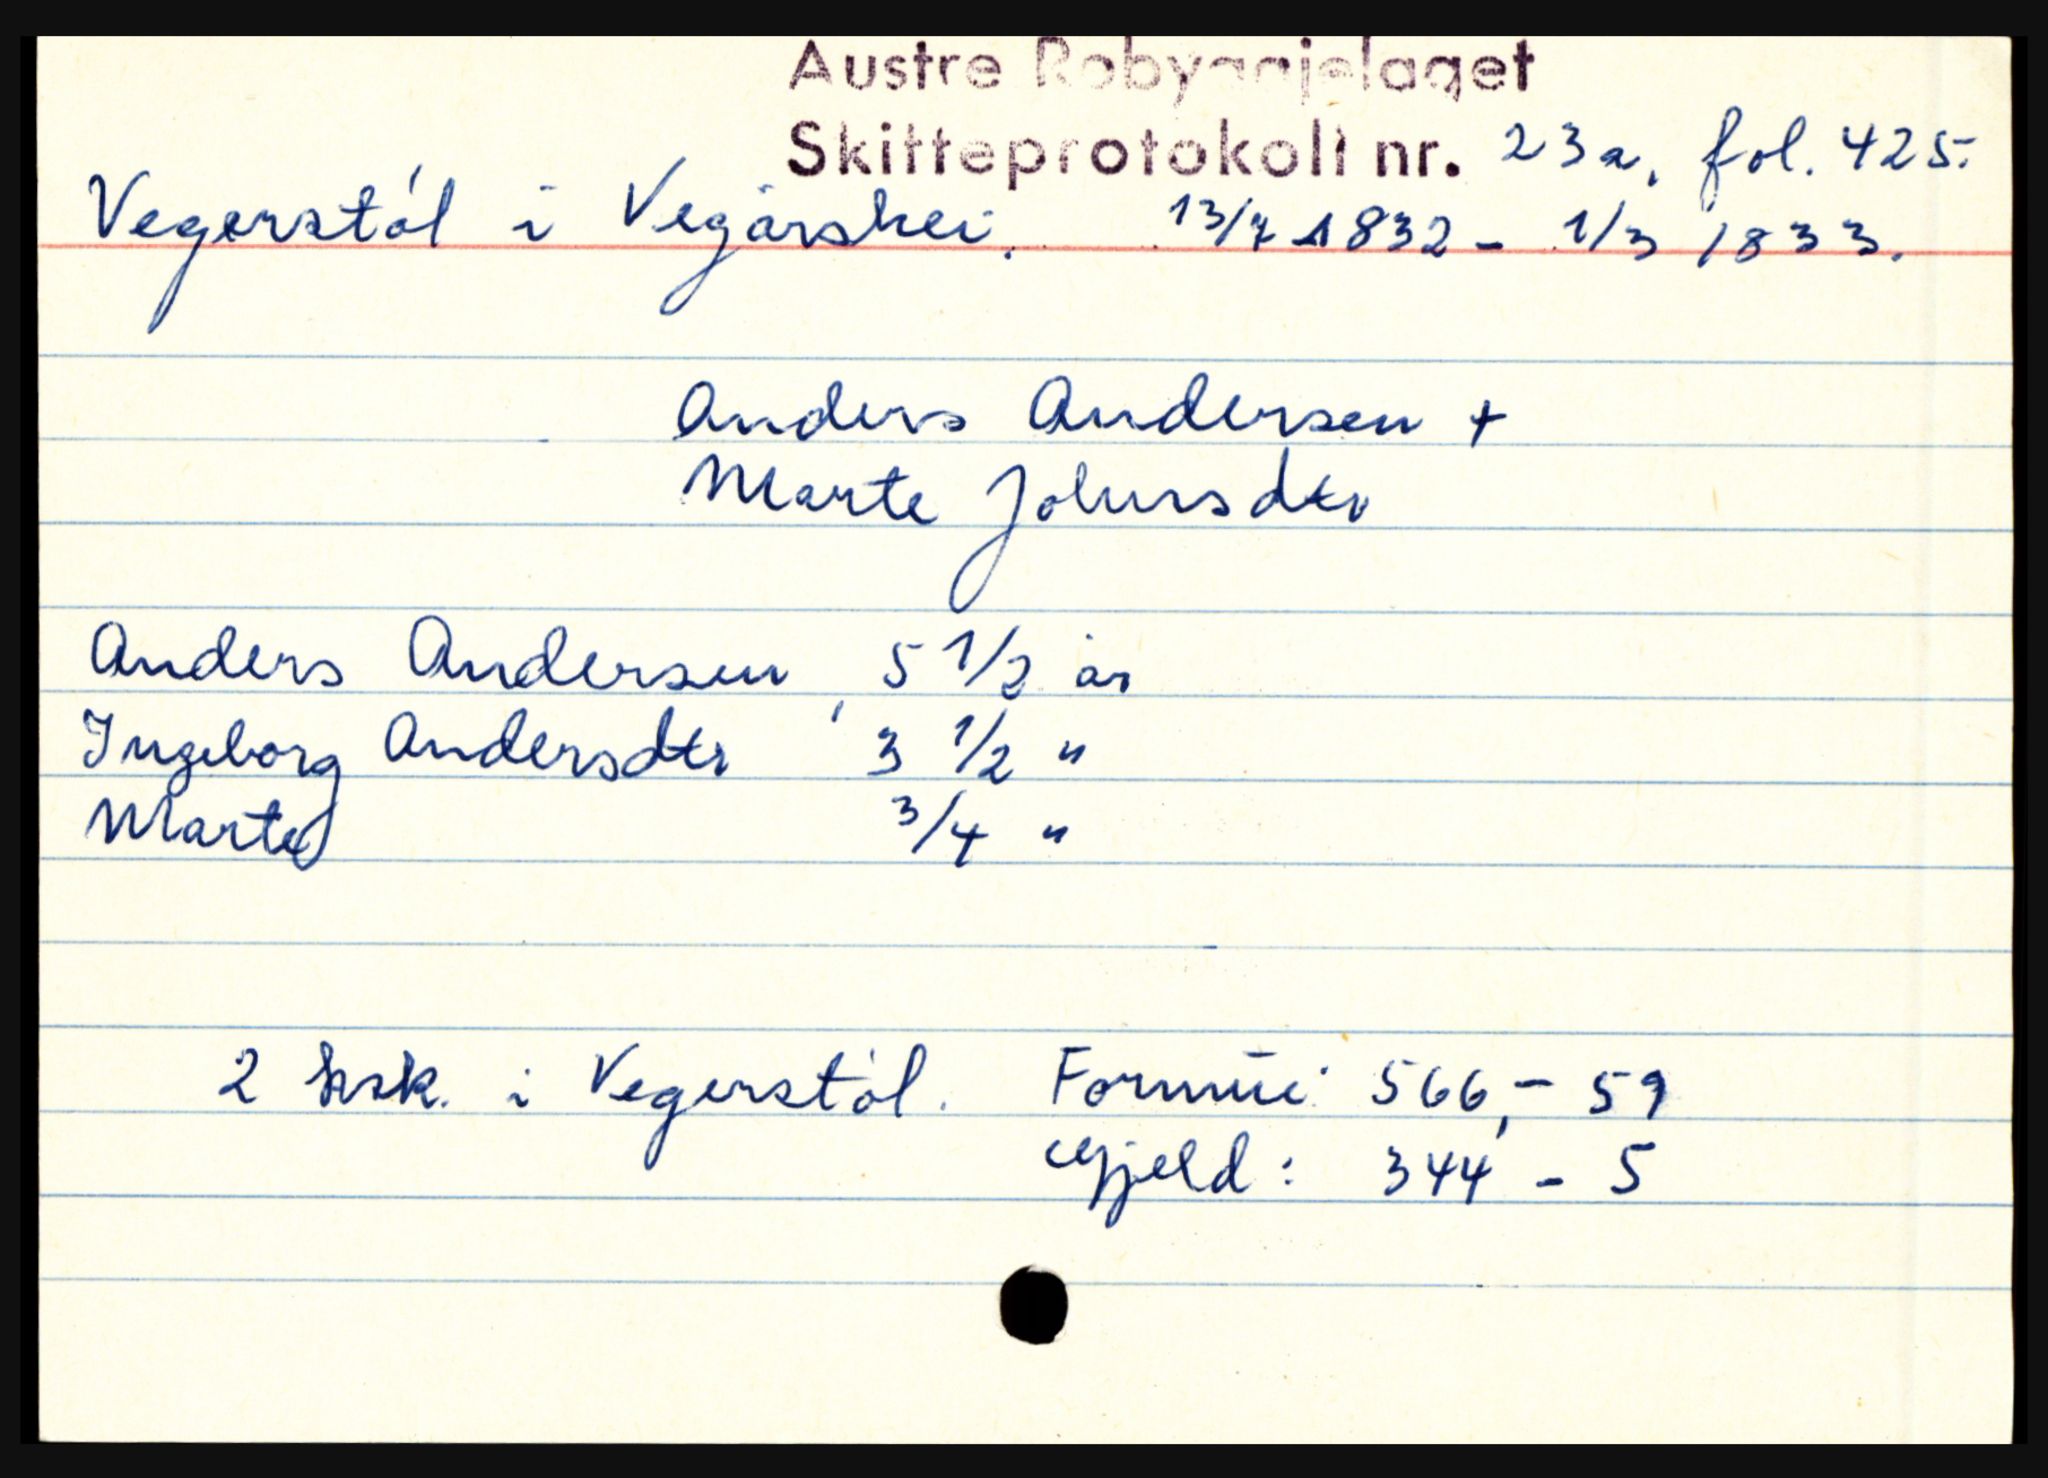 Austre Robyggjelaget
Skifteprotokoll nr. 23a, fol. 425.
Vegerstøl i Vegårshei. 13/7 1832 - 1/3 1833.
Anders Andersen +
Marte Johnsdtr
Anders Andersen, 5 1/2 år
Ingeborg Andersdtr 3 1/2 "
Marte 3/4 "
2 ksk. i Vegerstøl. Formue: 566,- 59
Gjeld: 344 - 5